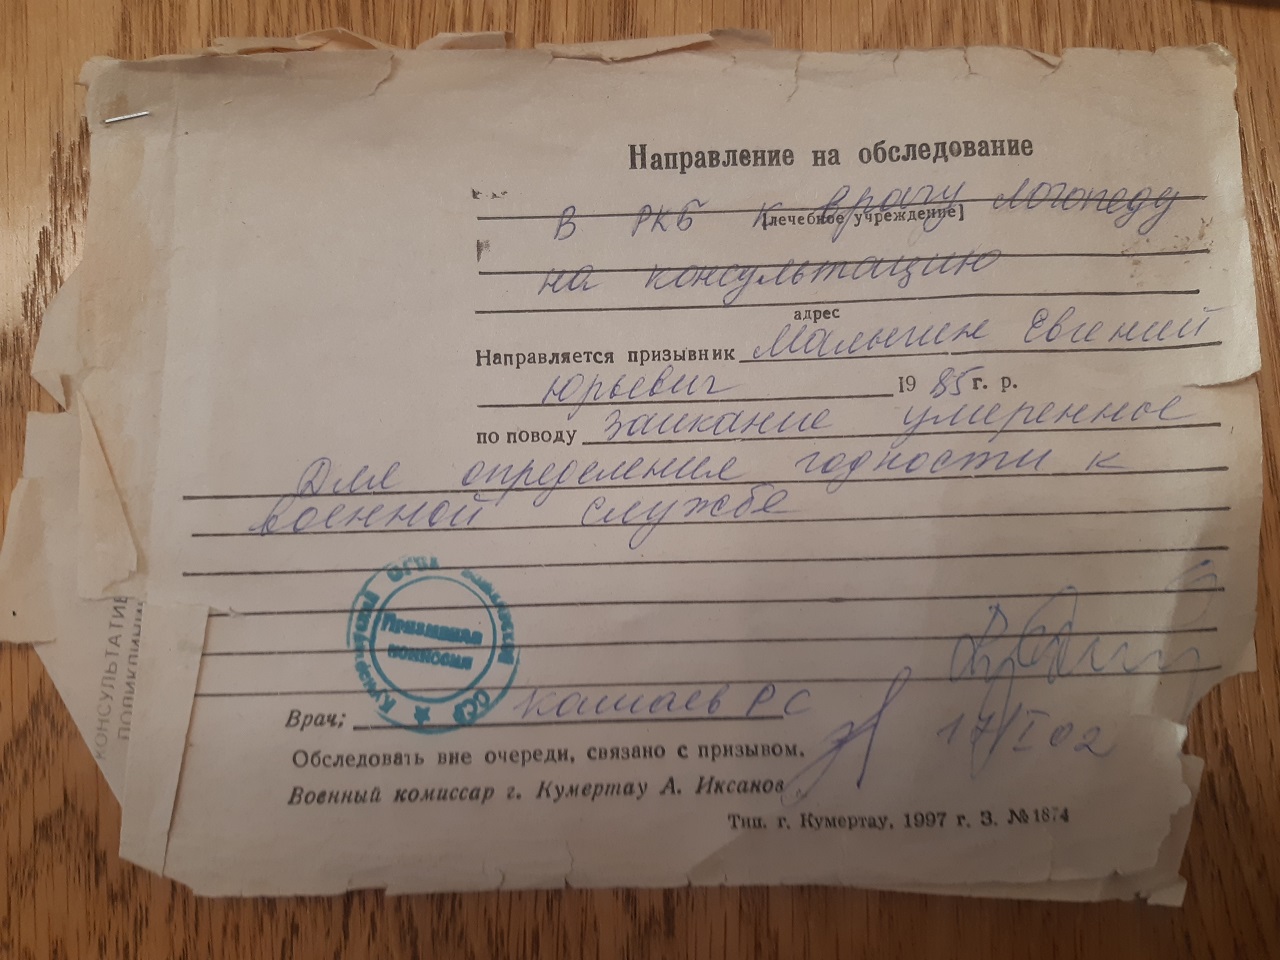 Направление на обследование
В РКБ к врачу логопеду
[лечебное учреждение]
на консультацию
адрес
Направляется призывник Малыгин Евгений
Юрьевич 1985 г. р.
по поводу Заикание умеренное
Для определения годности к
военной службе
Призывная
комиссия
Врач; Кашаев Р С
17/I 02
Обследовать вне очереди, связано с призывом.
Военный комиссар г. Кумертау А. Иксанов
Тип. г. Кумертау, 1997 г. З. №1874